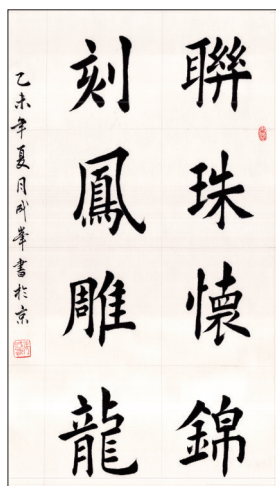 聯珠懷錦
刻鳳雕龍
乙未年夏月成峯書於京